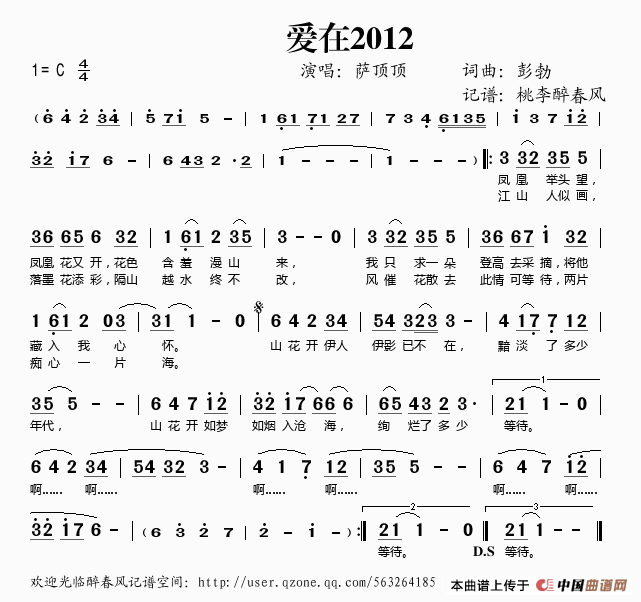 爱在2012
1=C 4/4 演唱：萨顶顶 词曲：彭勃
记谱：桃李醉春风
( 6 4 2 34 | 5 71 5 - | 1 61 71 27 | 7 3 4 6135 | 1 3 7 12 |
32 17 6 - | 6 43 2 · 2 | 1 - - - | 1 - - - ) ‖: 3 32 35 5 |
凤 凰 举头 望，
江 山 人似 画，
36 65 6 32 | 1 61 2 35 | 3 - - 0 | 3 32 35 5 | 36 67 1 36 |
凤凰 花又 开，花色 含 羞 漫 山 来， 我 只 求一 朵 登高 去采 摘，将他
落墨 花添 彩，隔山 越 水 终 不 改， 风 催 花散 去 此情 可等 待，两片
1 61 2 03 | 31 1 - 0 | 6 4 2 34 | 54 323 3 - | 4 17 7 12 |
藏 入 我 心 怀。 山 花 开 伊人 伊影 已不 在， 黯 淡 了 多少
痴 心 一 片 海。
35 5 - - | 6 4 7 12 | 32 17 66 6 | 65 43 2 3· | 21 1 - 0 |
年代， 山 花 开 如梦 如烟 入沧 海， 绚 烂了 多 少 等待。
6 4 2 34 | 54 32 3 - | 4 1 7 12 | 35 5 - - | 6 4 7 12 |
啊…… 啊…… 啊…… 啊…… 啊…… 啊……
32 17 6 - | ( 6 3 2 7 | 2 - 1 - ) :‖ 21 1 - 0 ‖ 21 1 - - ‖
等待。 D.S 等待。
欢迎光临醉春风记谱空间：http://user.qzone.qq.com/563264185 本曲谱上传于 中国曲谱网